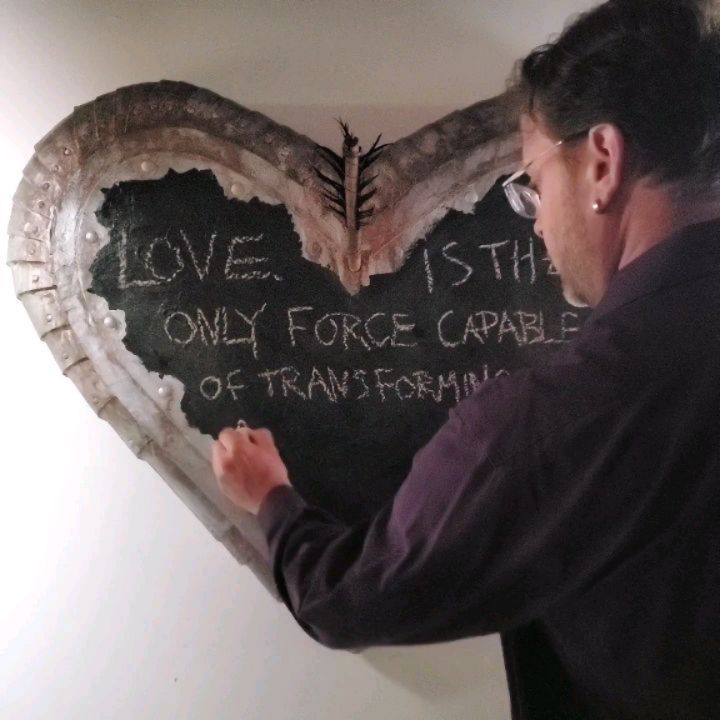 LOVE. IS THE
ONLY FORCE CAPABLE
OF TRANSFORMING